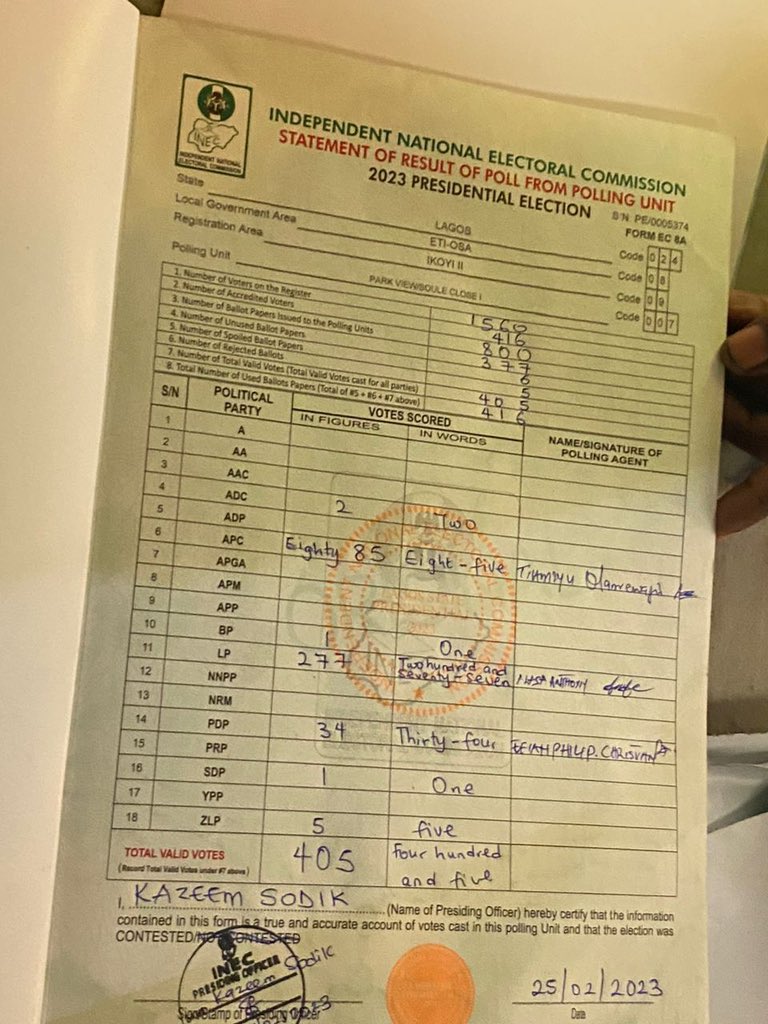 INEC
INDEPENDENT NATIONAL
ELECTORAL COMMISSION
INDEPENDENT NATIONAL ELECTORAL COMMISSION
STATEMENT OF RESULT OF POLL FROM POLLING UNIT
2023 PRESIDENTIAL ELECTION
S/N PE/0005374
FORM EC 8A
State LAGOS Code 024
Local Government Area ETI-OSA Code 08
Registration Area IKOYI II Code 09
Polling Unit PARK VIEW/SOULE CLOSE I Code 007
1. Number of Voters on the Register 1560
2. Number of Accredited Voters 416
3. Number of Ballot Papers Issued to the Polling Units 800
4. Number of Unused Ballot Papers 377
5. Number of Spoiled Ballot Papers 6
6. Number of Rejected Ballots 5
7. Number of Total Valid Votes (Total Valid Votes cast for all parties) 405
8. Total Number of Used Ballots Papers (Total of #5 + #6 + #7 above) 416
S/N POLITICAL PARTY VOTES SCORED NAME/SIGNATURE OF POLLING AGENT
IN FIGURES IN WORDS
1 A
2 AA
3 AAC
4 ADC 2 Two
5 ADP
6 APC Eighty 85 Eight-five
7 APGA
8 APM
9 APP
10 BP 1 One
11 LP 277 Two hundred and seventy-seven ANTHONY
12 NNPP
13 NRM
14 PDP 34 Thirty-four
15 PRP
16 SDP 1 One
17 YPP
18 ZLP 5 five
TOTAL VALID VOTES 405 four hundred and five
(Record Total Valid Votes under #7 above)
I, KAZEEM SODIK (Name of Presiding Officer) hereby certify that the information
contained in this form is a true and accurate account of votes cast in this polling Unit and that the election was
CONTESTED/NOT CONTESTED
INEC
PRESIDING OFFICER
Kazeem Sodik
25/02/2023
Sign/Stamp of Presiding Officer
Date